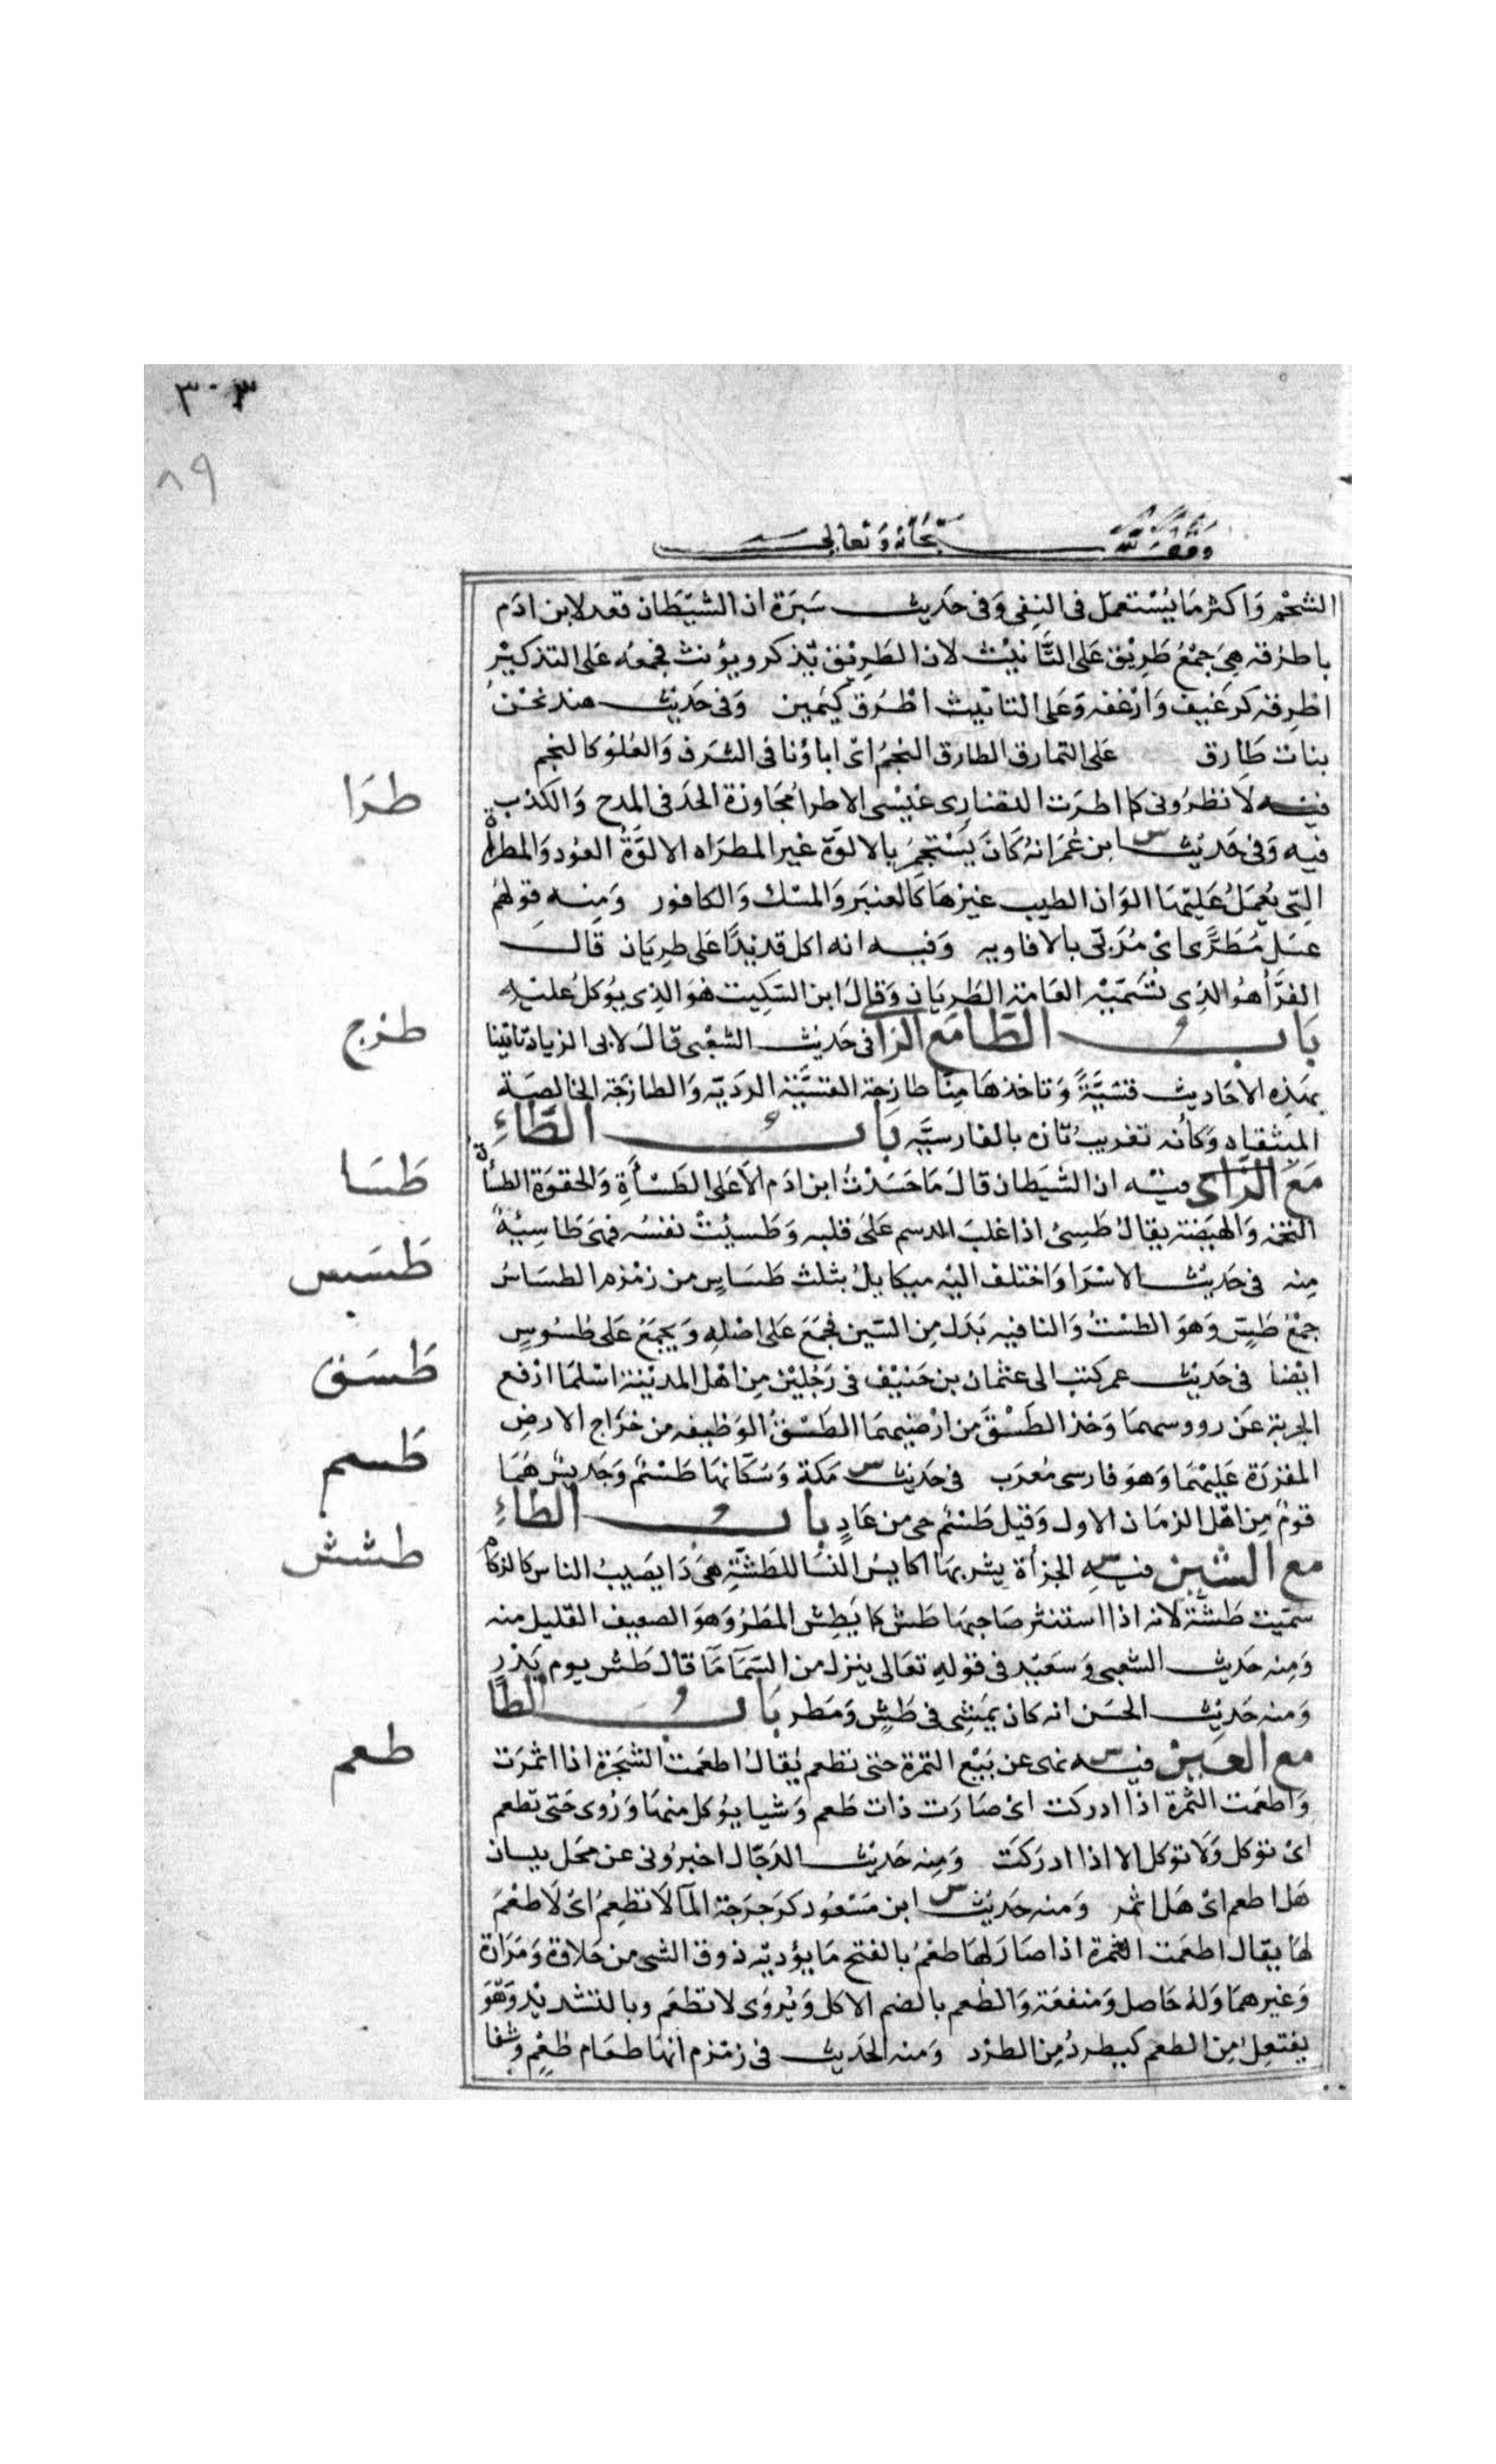 ٣٠٣
٨٩
وقف لله سبحانه وتعالى
الشحم وَاكثر مَا يُسْتعمل فى النفى وَفى حَديث سَبرَة ان الشيْطَان قعد لابن ادَم
باطرُقه هِىَ جمْعُ طَرِيْق عَلى التَّانيْث لان الطَرِيْق يّذكر ويؤنث فجمعُه عَلى التذكيْر
اطْرِقه كرغيف وَارْغفه وَعَلى التانيث اطْرُق كيَمين وَفى حَديْث هند نحْنُ
بنات طَارق على النمارق الطارق النجمُ اىْ اباؤنا فى الشرَف وَالعُلوْ كالنجم
طرَا
فيْه لَا تطرُونى كما اطرَت النصَارى عيْسى الاطرا مجَاوزة الحَد فى المدح وَالكذب
فيه وَفى حَديْث ابن عُمَر انهُ كَانَ يَسْتجمِرُ بالالوَّة غير المطرَاه الالوَّةُ العوُد وَالمطراة
التى يُعمَلُ عَليْهَا الوَان الطيب غيْرهَا كَالعنبَر وَالمسْك وَالكافور وَمِنه قولهُم
عسَل مُطَرًّى اىْ مُرَبّى بالافاويه وَفيه انه اكل قديْدًا عَلى طِريَان قَال
الفرَّأ هُوَ الذِى تسَمّيْه العَامة الطِريَان وَقالَ ابن السّكِيت هوَ الذِى يؤكلُ عليْه
طزج
بَابُ الطّا مَع الزا فى حَديْث الشعْبى قالَ لابى الزياد تاتينا
بهَذِه الاحَاديث قسّيَّةً وَتاخذهَا مِنّا طازجة القسيَّة الرَديّه وَالطازجَة الخالصَة
المنتقاه وَكأنه تعْريبُ تازه بالفارسيَّه بَابُ الطَّاءِ
طَسَا
مَعَ الزَّاى فيْه ان الشيَطان قالَ مَا حَسَدْتُ ابن ادَم الّا عَلى الطَسْأةِ وَالحقوَة الطسأة
التخمَه وَالهيَضَة يقالُ طَسِئ اذا غلبَ الدسم عَلى قلبه وَطَسيَتْ نفسُه فهىَ طَاسِيَةٌ
طَسَس
مِنه فى حَديْث الاسْرَا وَاختلف اليْه ميكايلُ بثلث طسَاسٍ من زمْزم الطسَاسُ
جمْعُ طَسٍّ وَهوَ الطسْتُ وَالتا فيه بَدَل مِن السّين فجمعَ عَلى اصْلِه وَيجمَعُ عَلى طسُوسٍ
طَسَق
ايْضا فى حَديْث عمر كتب الى عثمَان بن حَنيْف فى رَجُليْن مِن اهْل المديْنة اسْلمَا ارْفع
الجزية عَن رووسهمَا وَخذ الطَسْقَ من ارْضيْهمَا الطَسْقُ الوَظيفه من خرَاج الارض
طَسم
المقررَة عَليْهمَا وَهوَ فارسى مُعرَب فى حَديْث مكة وَسُكّانهَا طَسْمٌ وَجَديْسٌ هُمَا
قومٌ مِن اهْل الزمَان الاول وَقيل طَسْم حى من عَادٍ بَابُ الطاءِ
طشش
مع الشين فيْه الجزأة يشربهَا اكايس النسَا للطَشّةِ هىَ دَا يصَيبُ الناس كالزكام
سمّيت طَشّةً لانه اذا استنثر صَاحبهَا طَش كما يطِش المطرُ وَهوَ الضعيف القليل منه
وَمِنه حَديث الشعبى وَسعَيْد فى قولهِ تعَالى ينزل من السّمآ مَآ قال طَش يوم بَدْرٍ
وَمنه حَديْث الحسَن انه كان يمَشِى فى طَشٍّ وَمَطر بَابُ الطّا
طعم
مع العَيْن فيْه نهى عن بَيْع الثمرَة حتى تطعم يُقالُ اطعَمت الشجَرة اذا اثمرَت
وَاطعَمت الثمرَة اذا ادركت اىْ صَارَت ذات طَعم وَشيا يؤكل منهَا وَرُوى حَتى تطعم
اىْ توكل وَلَا توكل الا اذا ادرَكت وَمِنه حَديْث الدَجّال اخبرُونى عن نخَل بيسان
هَل اطعم اىْ هَل اثمر وَمنه حَديْث ابن مَسْعُود كرَجرَجة المآ لَا تطعِمُ اىْ لَا طعْمَ
لهَا يقال اطعمَت الثمرة اذا صَارَ لهَا طعْمٌ بالفتح مَا يؤديْه ذوق الشى من حَلاوة وَمَرَارة
وَغيرهمَا وَلهُ حَاصل وَمنفعَة وَالطُعم بالضم الاكل وَيُروَى لا تطعَم وبالتشديْد وَهوَ
يفتعِلُ مِن الطعم كيطردُ مِن الطرْد وَمنه الحَديث فى زمْزم انهَا طعَام طعْمٍ وَشفا